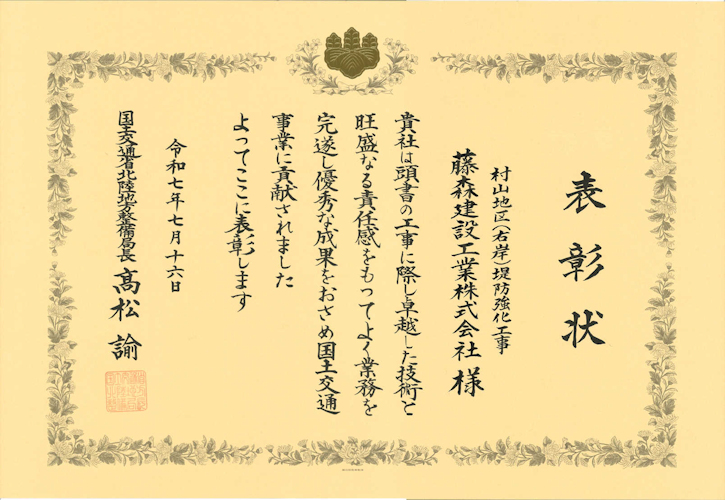 表彰状
村山地区（右岸）堤防強化工事
藤森建設工業株式会社 様
貴社は頭書の工事に際し卓越した技術と
旺盛なる責任感をもつてよく業務を
完遂し優秀な成果をおさめ国土交通
事業に貢献されました
よってここに表彰します
令和七年七月十六日
国土交通省北陸地方整備局長 髙松 諭